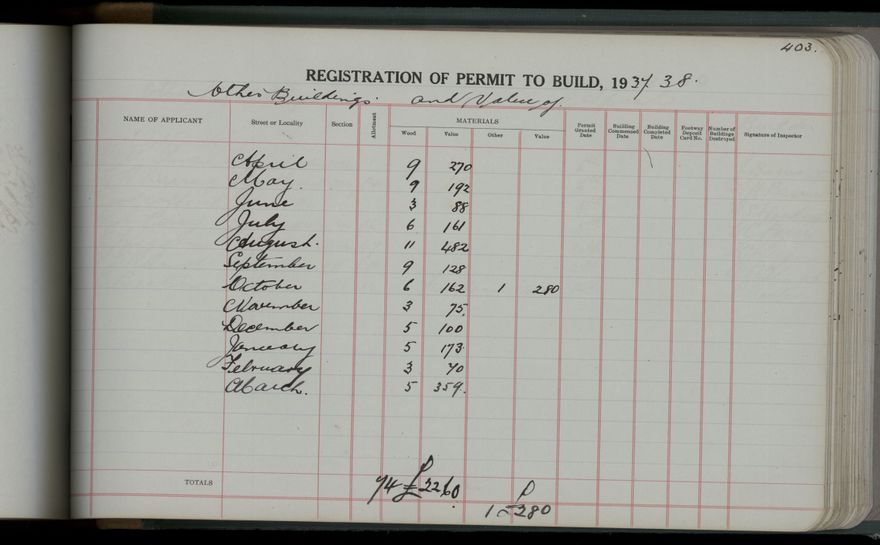 403.
REGISTRATION OF PERMIT TO BUILD, 1937/38.
Other Buildings and Value of.
NAME OF APPLICANT Street or Locality Section Allotment MATERIALS Wood Value Other Value Permit Granted Date Building Commenced Date Building Completed Date Footway Deposit Card No. Number of Buildings Destroyed Signature of Inspector
April 9 270
May. 9 192
June 3 88
July 6 161
August. 11 482
September 9 128
October 6 162 1 280
November 3 75.
December 5 100
January 5 173
February 3 70
March. 5 359.
TOTALS 74 £2260.
1 £280